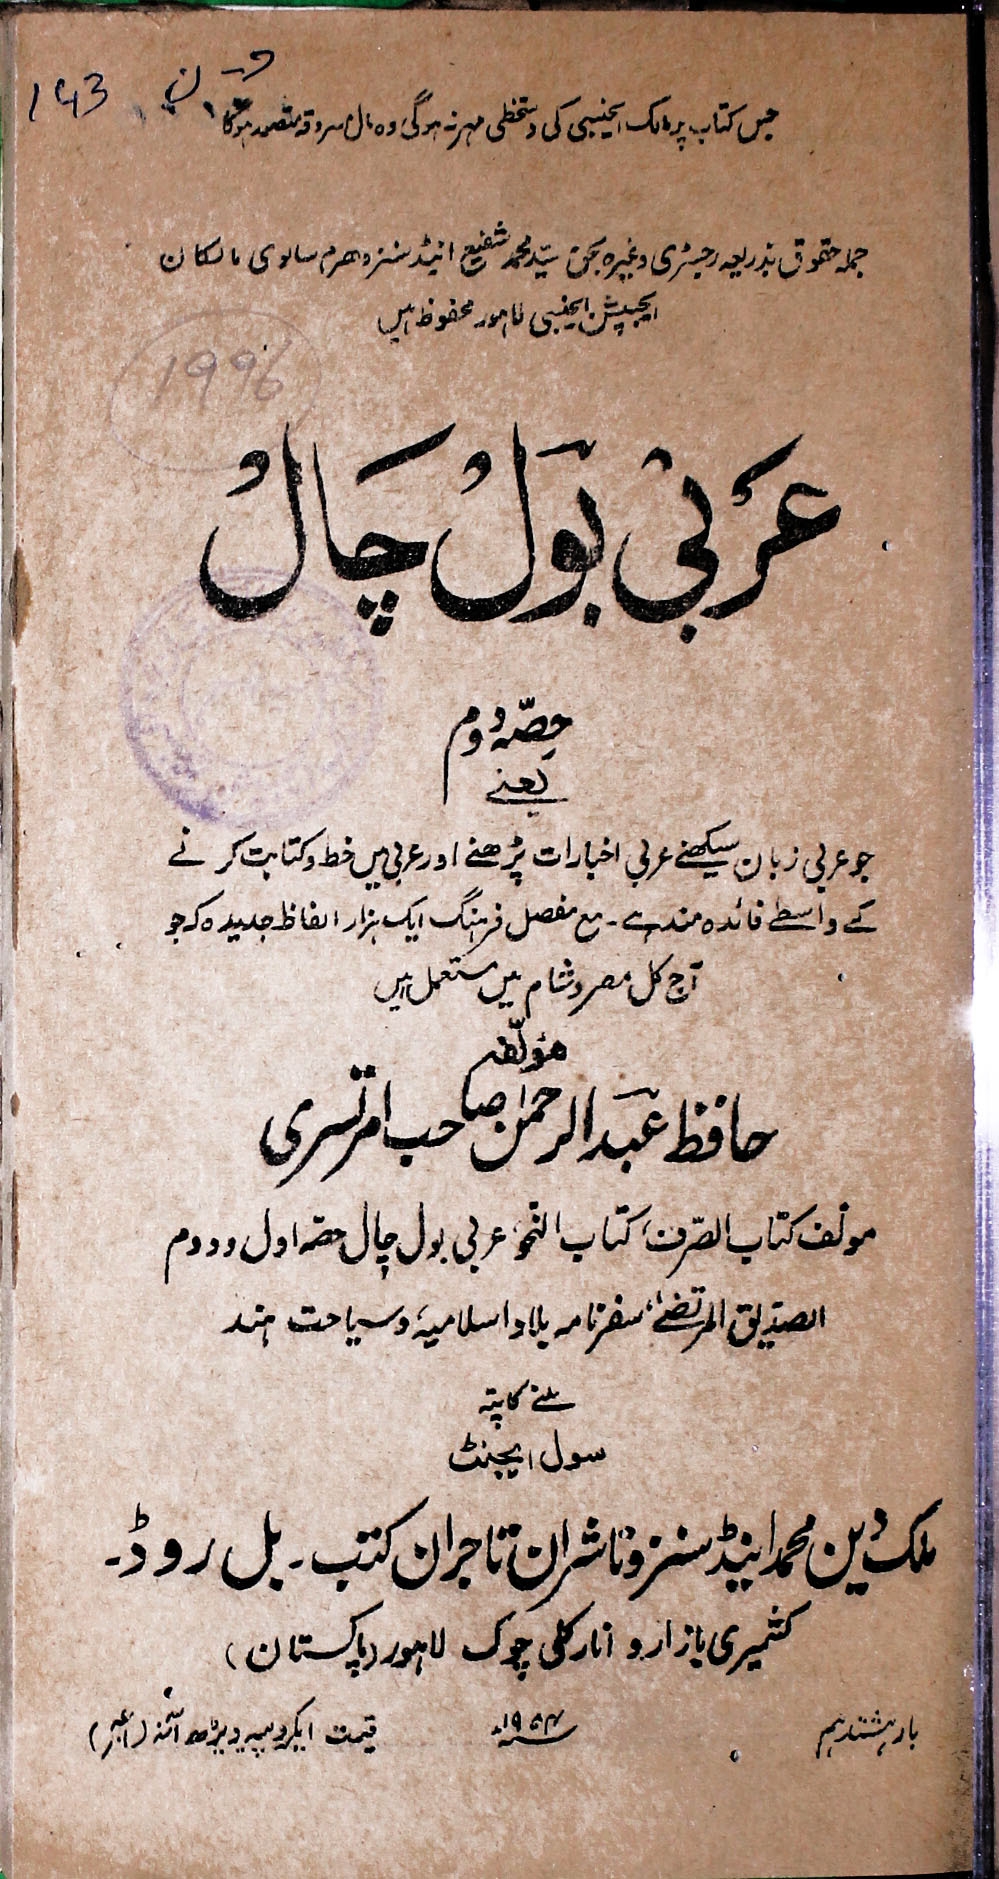 143
جس کتاب پر مالک ایجنسی کی دستخطی مہر نہ ہوگی وہ مال مسروقہ متصور ہوگا
جملہ حقوق بذریعہ رجسٹری وغیرہ بحق سیّد محمد شفیع اینڈ سنز دھرم سالوی مالکان
ایجپشن ایجنسی لاہور محفوظ ہیں
1996
عَرَبی بَول چَال
حِصّہ دوم
یعنے
جو عربی زبان سیکھنے عربی اخبارات پڑھنے اور عربی میں خط و کتابت کرنے
کے واسطے فائدہ مند ہے۔ مع مفصل فرہنگ ایک ہزار الفاظ جدیدہ کہ جو
آج کل مصر و شام میں مستعمل ہیں
مؤلّفہ
حافظ عَبدالرحمٰن صاحب امرتسری
مولف کتاب الصّرف، کتاب النحو، عربی بول چال حصّہ اول و دوم
الصدیق المرتضٰے، سفرنامہ بلاد اسلامیہ و سیاحت ہند
ملنے کا پتہ
سول ایجنٹ
ملک دین محمد اینڈ سنز و ناشران تاجران کتب۔ بل روڈ۔
کشمیری بازار و انارکلی چوک لاہور (پاکستان)
بار ہشتدہم
۱۹۵۴ء
قیمت ایکروپیہ ڈیڑھ آنہ